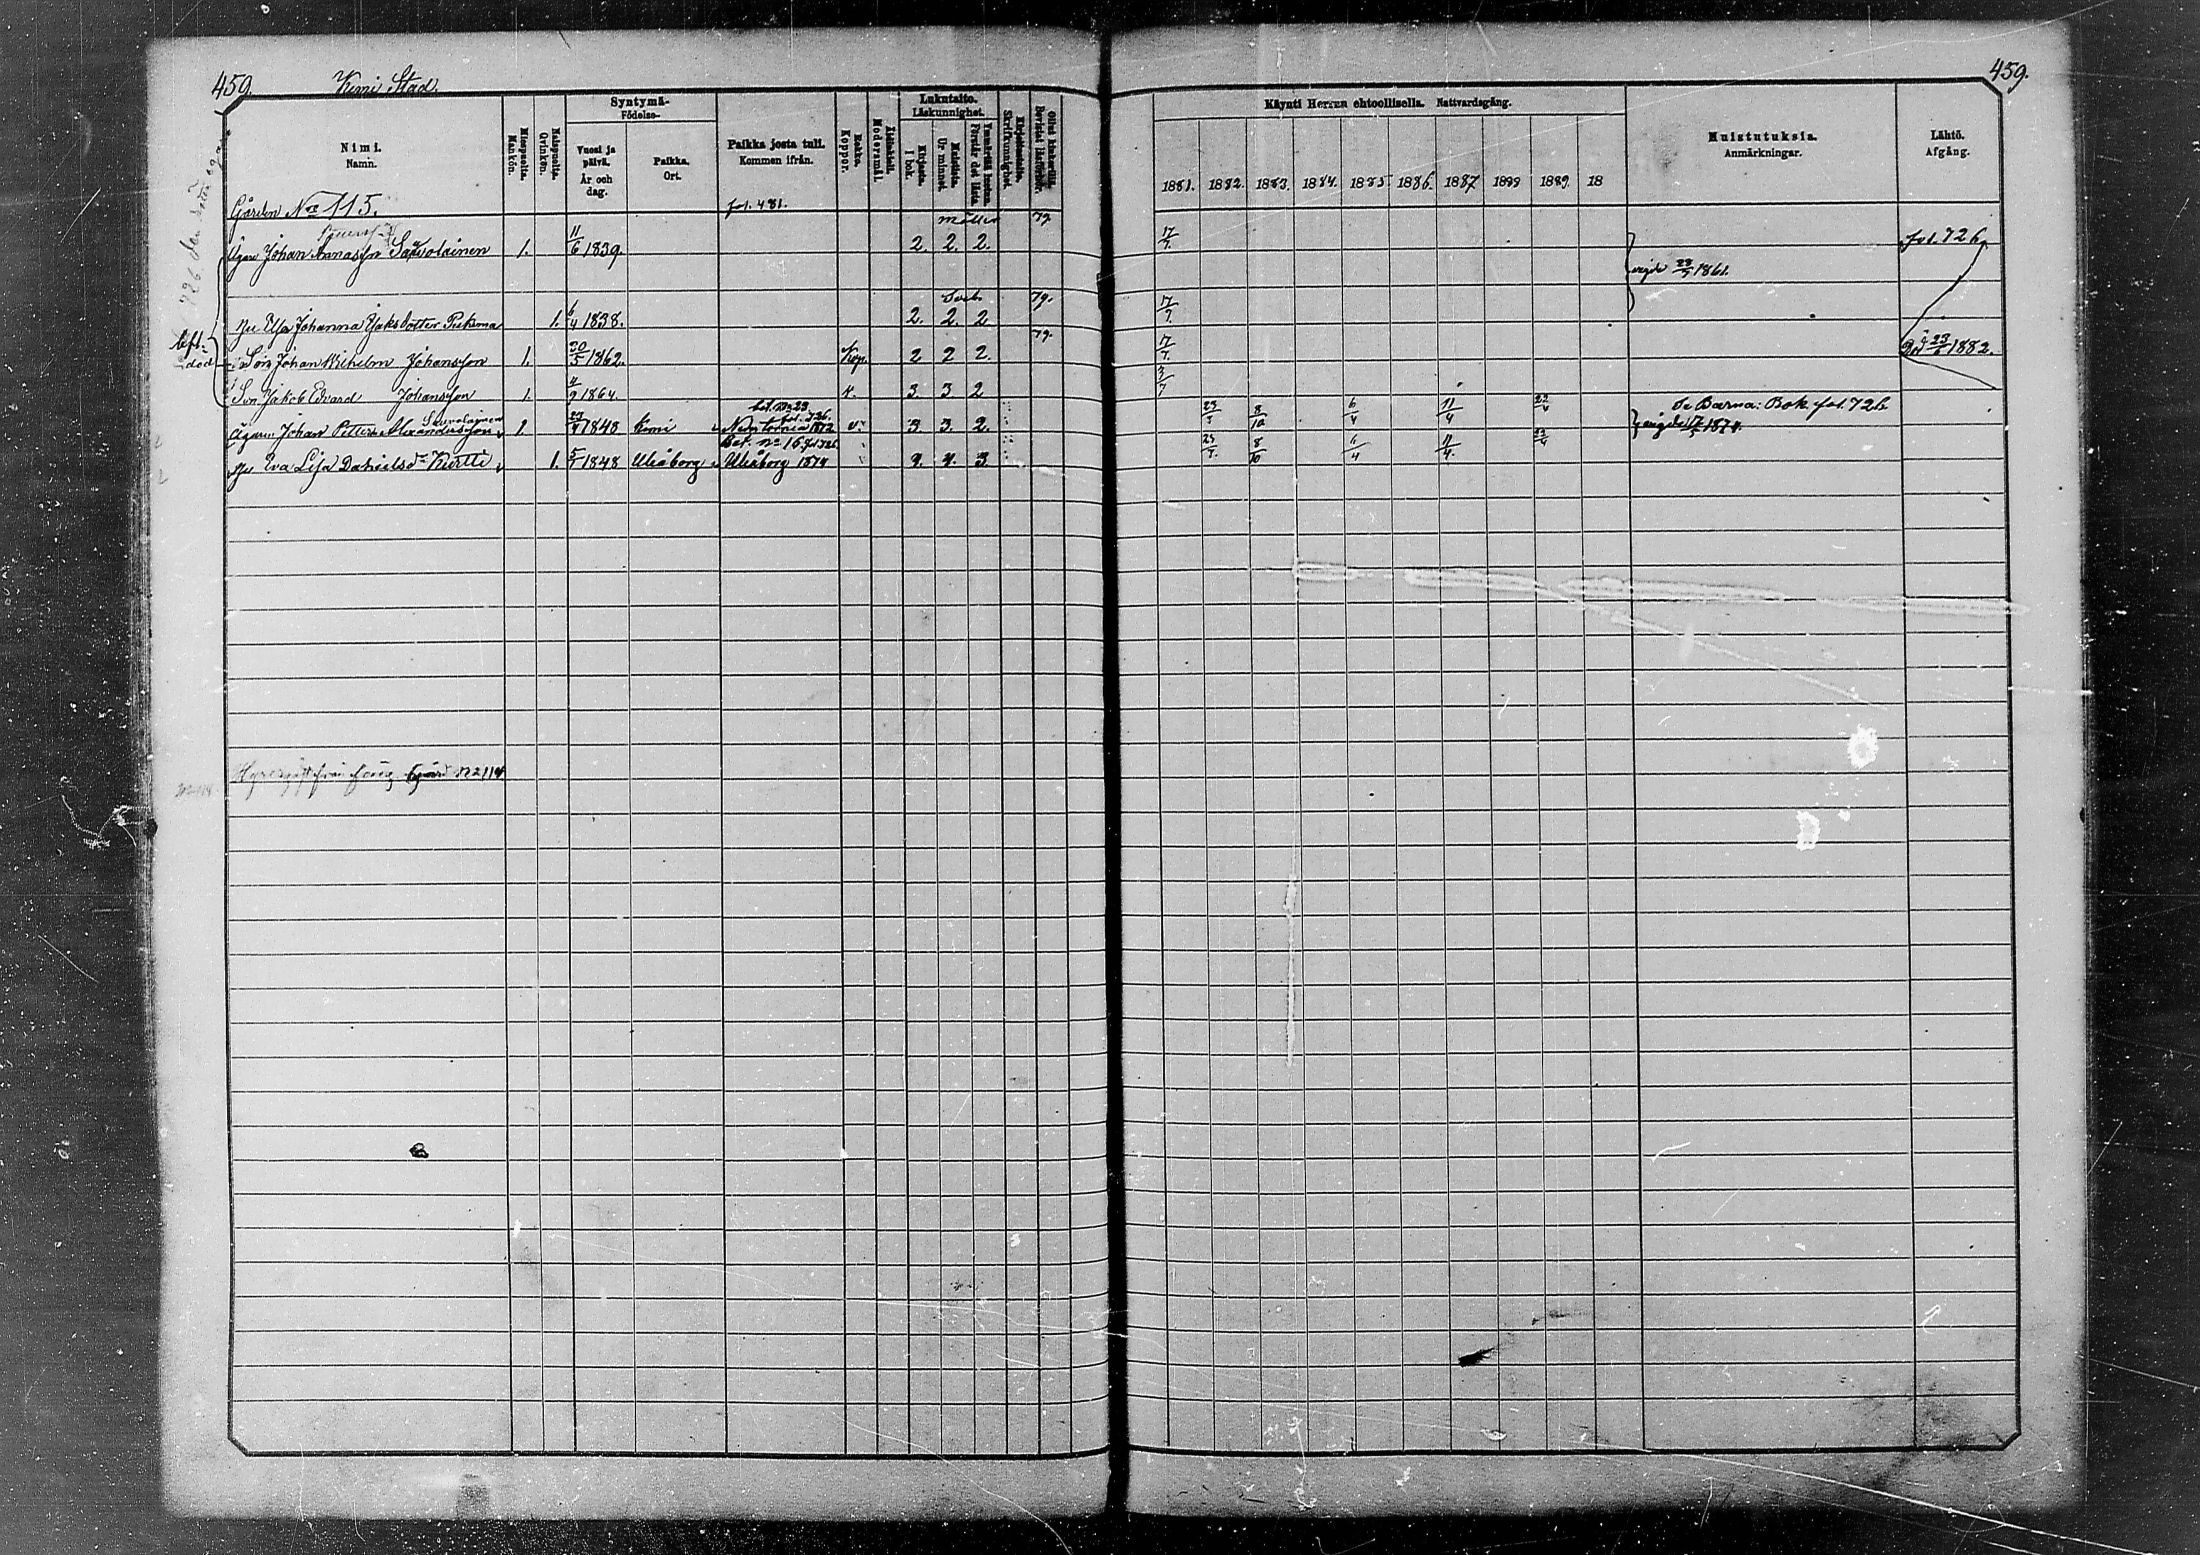 459. Kemi Stad. 459.
Nimi.
Namn.
Miespuolia.
Mankön.
Naispuolia.
Qvinkön.
Syntymä-
Födelse-
Vuosi ja
päivä.
År och
dag.
Paikka.
Ort.
Paikka josta tuli.
Kommen ifrån.
Rokko.
Koppor.
Äidinkieli.
Modersmål.
Lukutaito.
Läskunnighet.
Kirjasta.
I bok.
Muistista.
Ur minnet.
Ymmärtää luetun.
Förstår det lästa
Kirjoitustaito.
Skrifkunnighet.
Ollut kinkerillä.
Bevistat läsförhör.
Käynti Herran ehtoollisella. Nattvardsgång.
1881. 1882. 1883. 1884. 1885 1886. 1887 1888 1889. 18
Muistutuksia.
Anmärkningar.
Lähtö.
Afgång.
Gården No 115. fol. 481.
möller 79
Ägare Johan Annasson Savolainen 1. 11/6 1839. 2. 2. 2. 17/7. fol. 726
vigde 28/7 1861.
79.
Hu Elsa Johanna Jaks dotter 1. 6/4 1838. 2. 2. 2 17/7.
79.
Son Johan Wilhelm Johansson 1. 20/5 1862. Kop. 2 2 2. 17/7. Död 23/6 1882.
Son Jakob Edvard Johansson 1. 4/9 1864. K. 3 3 2 3/7
Savolainen fol. 726. Se Barna: Bok fol. 726
Ägaren Johan Petter Alexandersson 1. 23/7 1848 Kemi Ned. Tornia 1872 v. 3 3. 2. 23/7 8/10 6/4 11/4 22/4 1874.
Bet. No 16
Hu Eva Lisa Danielsdr Kurtti 1. 5/7 1848 Uleåborg Uleåborg 1874 4. 4. 3 23/7. 8/10 6/4 11/4. 22/4
gård No 114